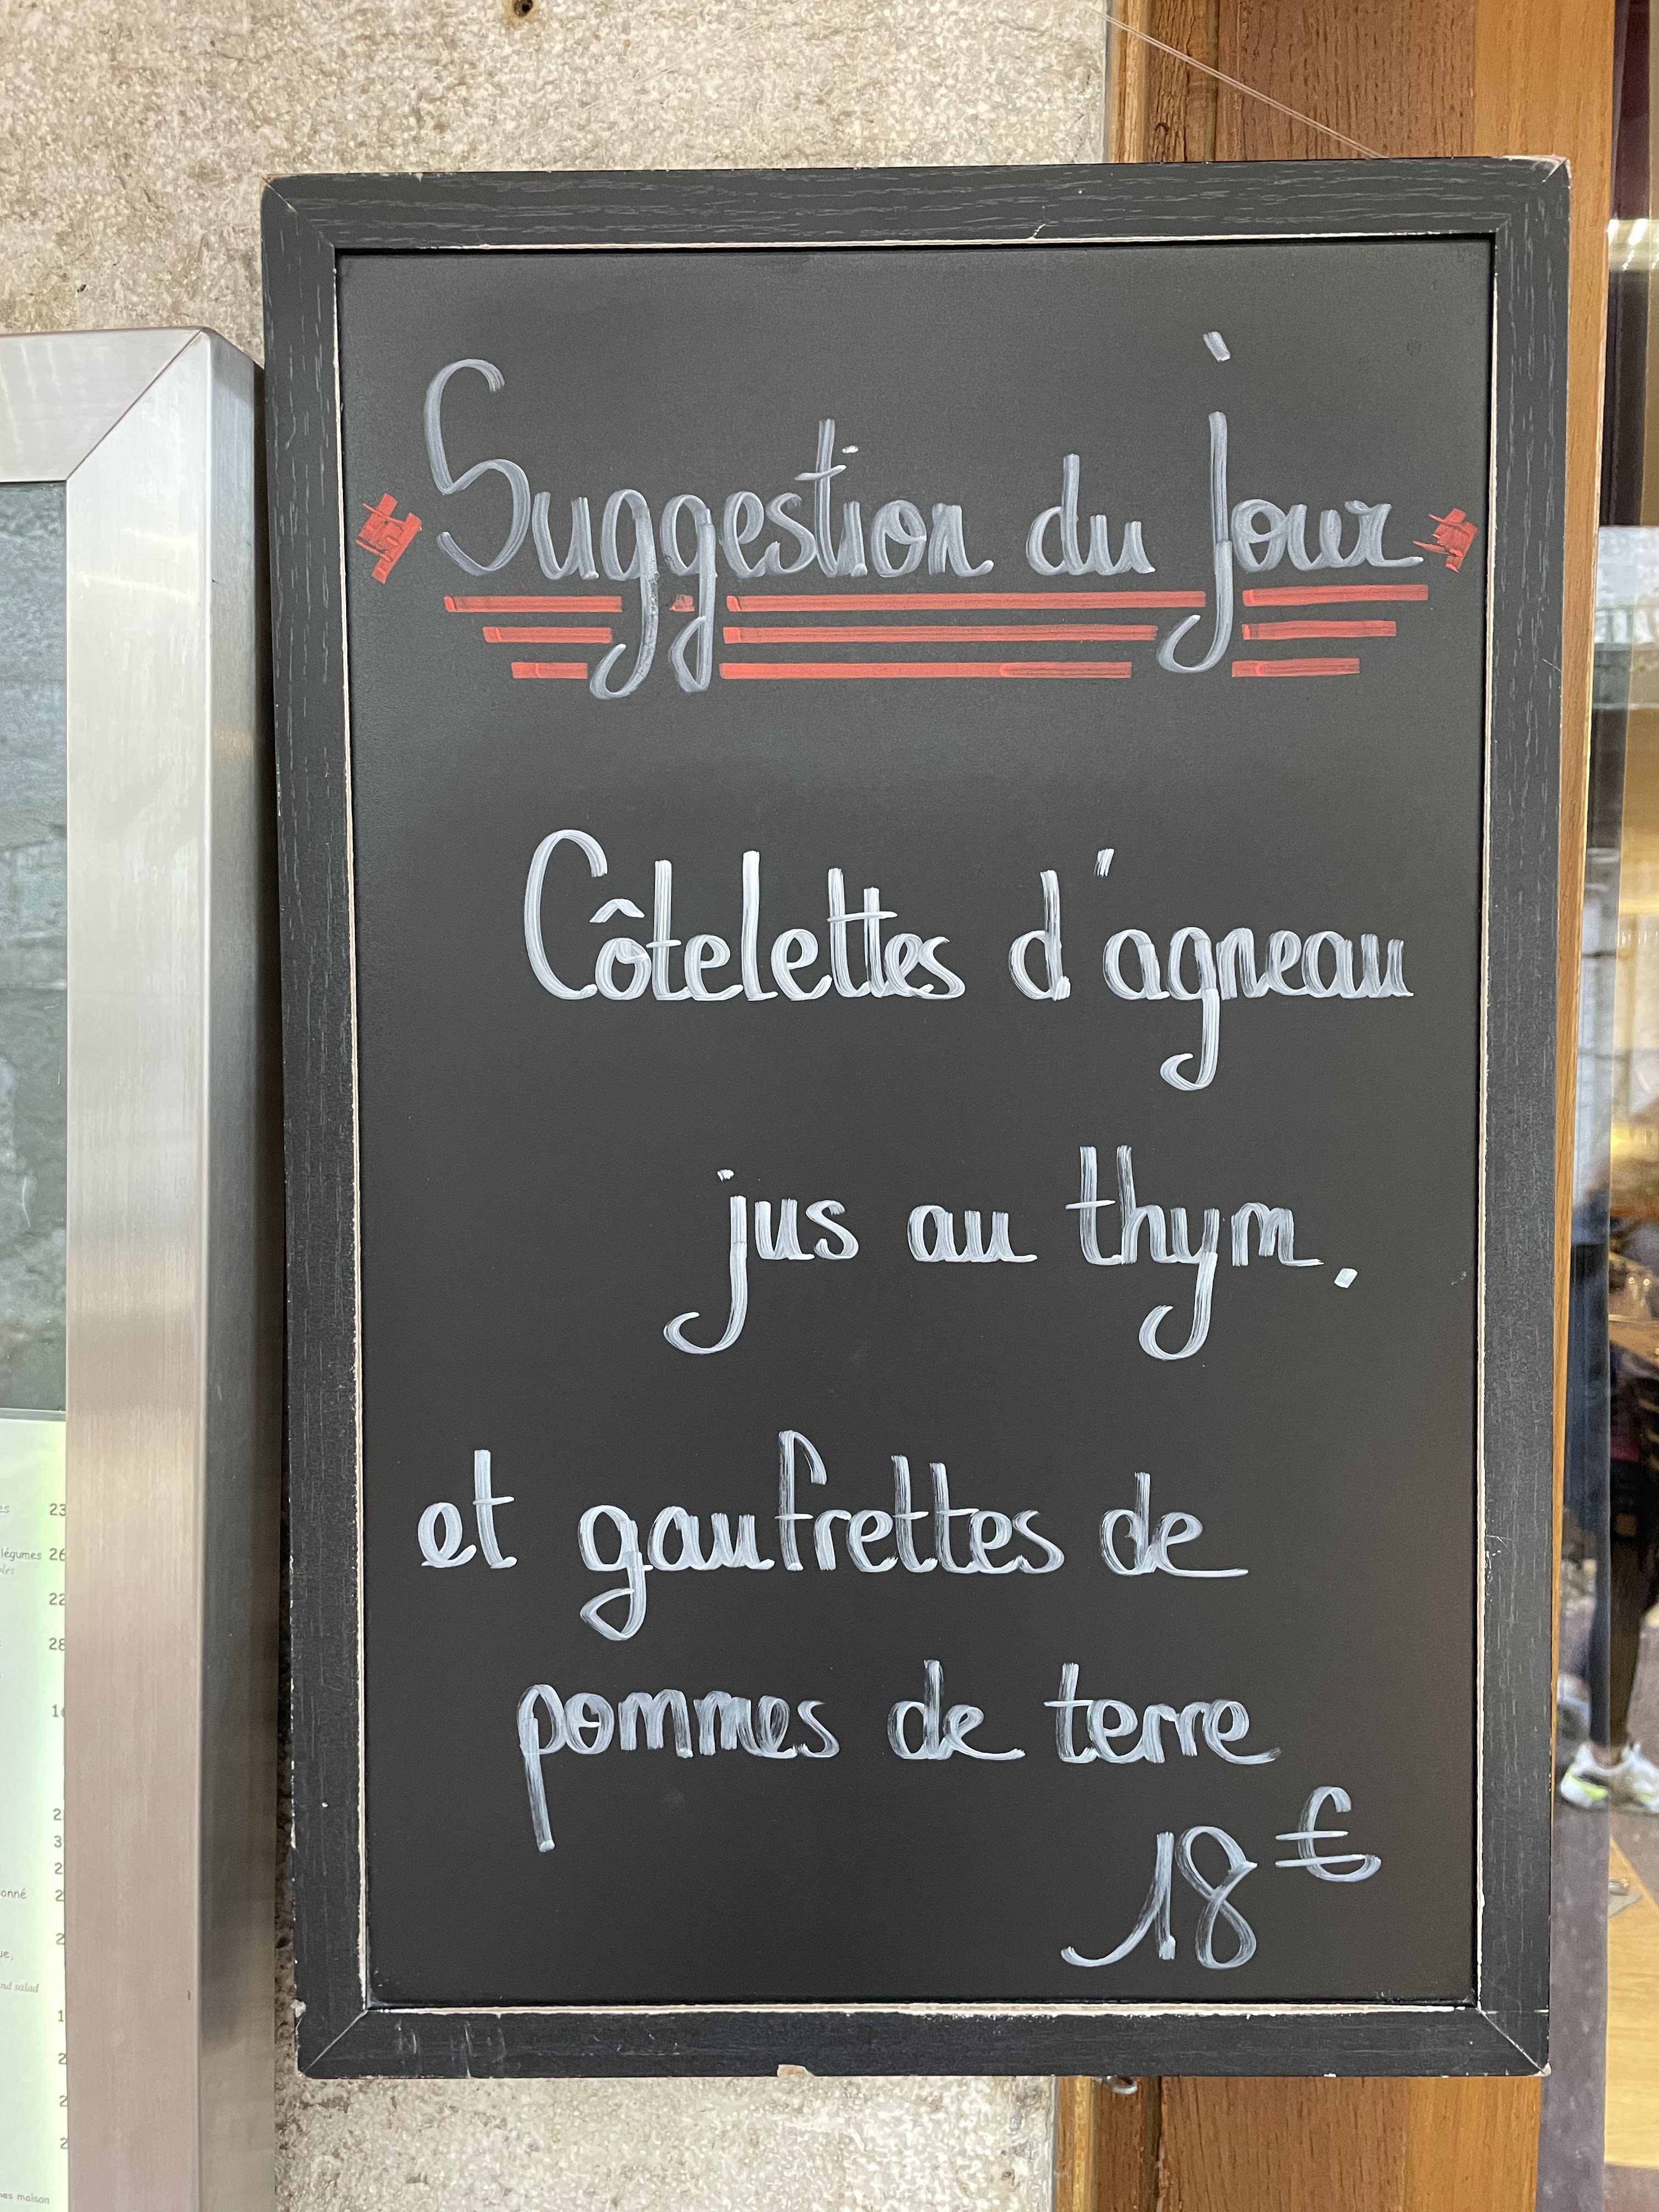 Suggestion du jour
Côtelettes d'agneau
jus au thym.
et gaufrettes de
pommes de terre
18 €
23
légumes 26
22
28
2
3
2
onné 2
2
nd salad
1
2
2
2
maison